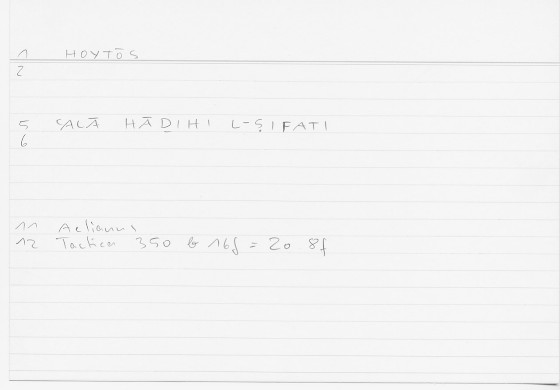 1 HOYTŌS
2
5 ʿALĀ HĀḎIHI L-ṢIFATI
6
11 Aelianus
12 Tactica 350 b 16f = 20 8f